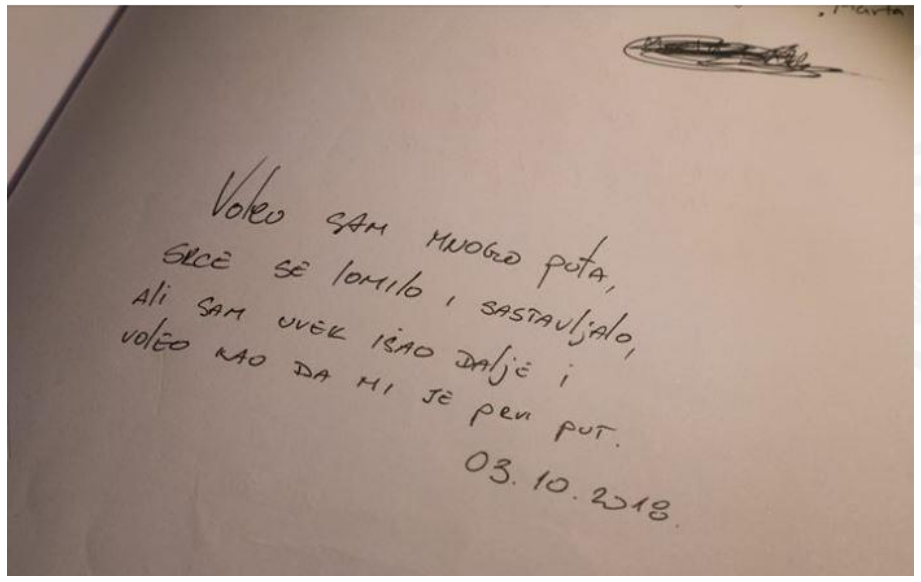 , Marta
Voleo SAM MNOGO putA,
SRCE SE lomilo i SASTAVljAlo,
Ali SAM UVEK IŠAO DAljE i
volEO KAO DA MI JE prvi put.
03.10.2018.